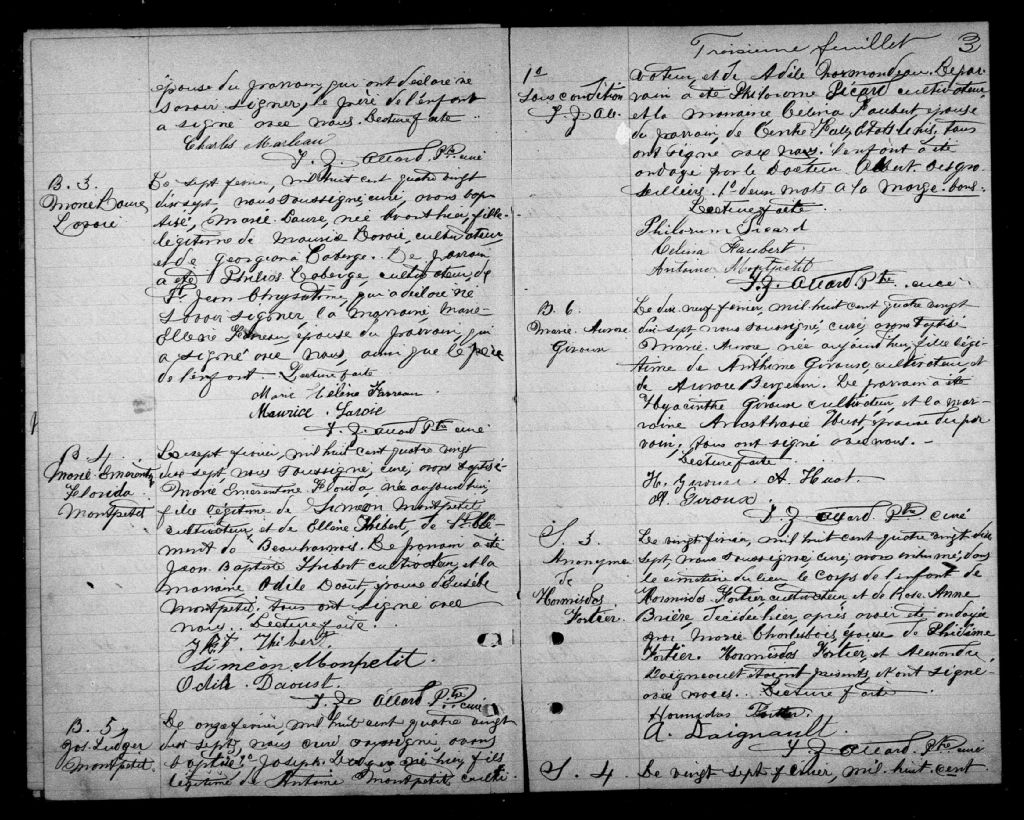 épouse du parrain, qui ont déclaré ne
savoir signer, le père de l'enfant
a signé avec nous. Lecture faite
Charles Marleau
F. J. Allard Ptre curé
B. 3.
Marie Laure
Lavoie
Le sept fevrier, mil huit cent quatre vingt
dix sept, nous soussigné, curé, avons bap
tisé, Marie Laure, née avant hier, fille
légitime de Maurice Lavoie, cultivateur,
et de Georgiana Laberge. Le parrain
a été Philias Laberge, cultivateur, de
St Jean Chrysostome, qui a déclaré ne
savoir signer, la marraine Marie
Ellène Farreau épouse du parrain, qui
a signé avec nous, ainsi que le père
de l'enfant. Lecture faite
Marie Hélène Farreau
Maurice Lavoie
F. J. Allard Ptre curé
B. 4.
Marie Emerentine
Florida
Montpetit
Le sept fevrier, mil huit cent quatre vingt
dix sept, nous soussigné, curé, avons baptisé
Marie Emerentine Florida, née aujourd'hui,
fille légitime de Siméon Montpetit
cultivateur, et de Ellène Thibert, de St Clé
ment de Beauharnois. Le parrain a été
Jean Baptiste Thibert cultivateur, et la
marraine Odile Daoût, épouse d'Eusèbe
Montpetit, tous ont signé avec
nous. Lecture faite.
J. Bt Thibert
Siméon Monpetit.
Odile Daoust.
F. J. Allard Ptre curé
B. 5
Jos. Ludger
Montpetit.
Le onze fevrier, mil huit cent quatre vingt
dix sept, nous curé soussigné, avons
baptisé Joseph Ludger né hier, fils
légitime de Antoine Montpetit, culti
Troisième feuillet 3
1o
Sous condition
F J All.
vateur, et de Adèle Normandeau. Le par
rain a été Philorome Picard cultivateur
et la marraine Célina Faubert épouse
du parrain, de Etats Unis, tous
ont signé avec nous. l'enfant a été
ondoyé par le Docteur Albert Desgro
seilliers. 1o deux mots à la marge bons.
Lecture faite.
Philorum Picard
Celina Faubert.
Antoine Montpetit
F. J. Allard Ptre curé.
B. 6.
Marie Aurore
Giroux
Le dix neuf fevrier, mil huit cent quatre vingt
dix-sept, nous soussigné, curé, avons baptisé
Marie Aurore née aujourd'hui, fille légi
time de Anthime Giroux, cultivateur, et
de Aurore Bergevin. Le parrain a été
Hyacinthe Giroux cultivateur, et la mar
raine Anasthasie Huot, épouse du par
rain, tous ont signé avec nous. -
Lecture faite.
H. Giroux. A. Huot.
A. Giroux.
F. J. Allard Ptre curé
S. 3.
Anonyme
de
Hormisdas
Fortier.
Le vingt fevrier, mil huit cent quatre vingt dix
sept, nous soussigné, curé, avons inhumé, dans
le cimetière du lieu le corps de l'enfant de
Hormisdas Fortier, cultivateur et de Rose Anne
Brière, décédé hier, après avoir été ondoyé
par Marie Charlebois, épouse de Philème
Fortier. Hormisdas Fortier, et Alexandre
Daigneault étaient présents, et ont signé
avec nous. Lecture faite
Hormisdas Fortier
A. Daignault.
F. J. Allard Ptre curé
S. 4
Le vingt sept fevrier, mil huit cent